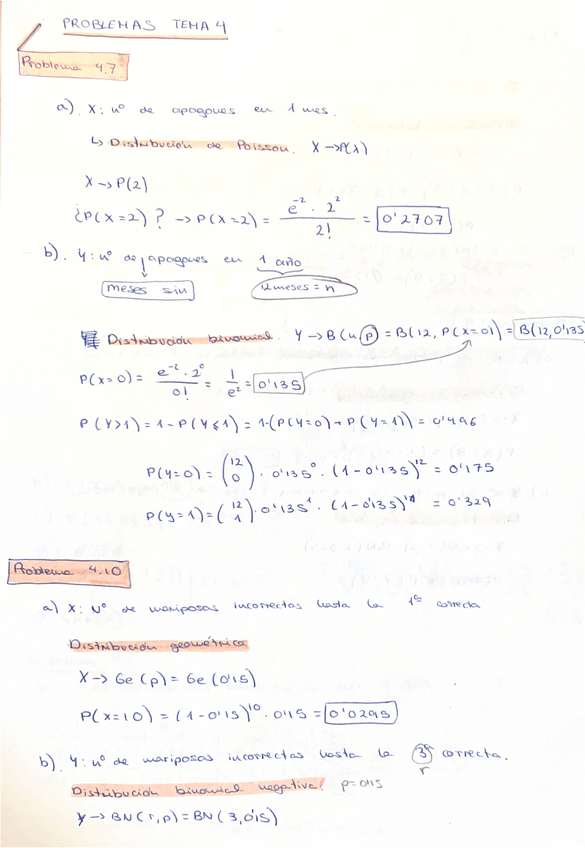 PROBLEMAS TEMA 4
Problema 4.7
a). X: nº de apagones en 1 mes.
↳ Distribución de Poisson. X→P(λ)
X→P(2)
¿P(X=2)? → P(X=2) = e⁻² · 2² / 2! = 0'2707
b). Y: nº de apagones en 1 año
meses sin 12 meses = n
Distribución binomial. Y→B(n,p) = B(12, P(X=0)) = B(12,0'135
P(X=0) = e⁻² · 2⁰ / 0! = 1 / e² = 0'135
P(Y>1) = 1-P(Y≤1) = 1-(P(Y=0) + P(Y=1)) = 0'496
P(Y=0) = (12 0) · 0'135⁰ · (1-0'135)¹² = 0'175
P(Y=1) = (12 1) · 0'135¹ · (1-0'135)¹¹ = 0'329
Problema 4.10
a) X: Nº de mariposas incorrectas hasta la 1ª correcta
Distribución geométrica
X→ Ge(p) = Ge(0'15)
P(X=10) = (1-0'15)¹⁰ · 0'15 = 0'0295
b). Y: nº de mariposas incorrectas hasta la 3ª correcta.
r
Distribución binomial negativa. p=0'15
Y→ BN(r,p) = BN(3,0'15)